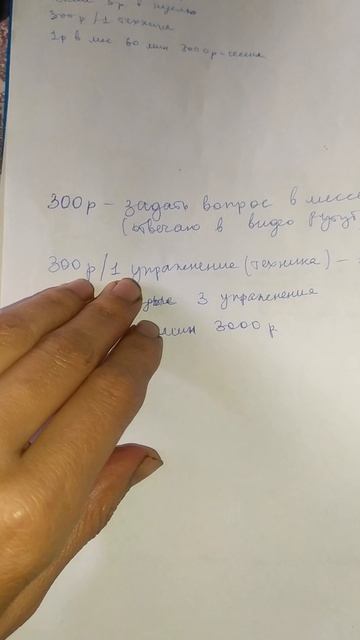 3р в неделю
300р/1 техника
1р в мес 60 мин 3000р-сессия
300р – задать вопрос в мессе
(отвечаю в видео рутуб
300р/1 упражнение (техника) –
3 упражнения
мин 3000р